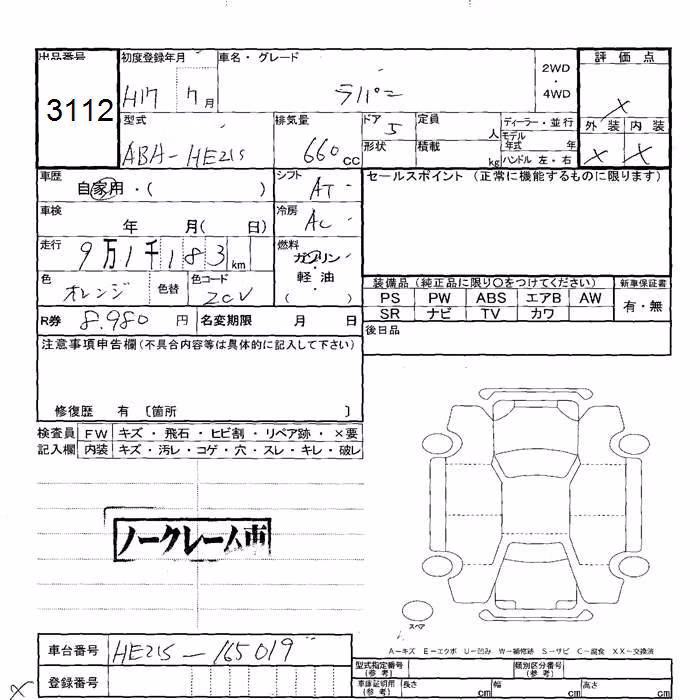 出品番号 初度登録年月 車名・グレード 2WD 評価点
3112 H17 7月 ラパン ・ 4WD ×
型式 排気量 ドア 5 定員 人 ディーラー・並行 外装 内装
ABA-HE21S 660cc 形状 積載 kg モデル年式 年 × ×
ハンドル 左・右
車歴 自家用・( ) シフト AT セールスポイント (正常に機能するものに限ります)
車検 年 月( 日) 冷房 AC
走行 9万1千183km 燃料 ガソリン
色 オレンジ 色替 色コード ZCV 軽・油 ( )
装備品 (純正品に限り〇をつけてください) 新車保証書
PS PW ABS エアB AW 有・無
SR ナビ TV カワ
R券 8.980円 名変期限 月 日 後日品
注意事項申告欄 (不具合内容等は具体的に記入して下さい)
修復歴 有 〔箇所 〕
検査員 FW キズ・飛石・ヒビ割・リペア跡・×要
記入欄 内装 キズ・汚レ・コゲ・穴・スレ・キレ・破レ
ノークレーム車
スペア
A-キズ E-エクボ U-凹み W-補修跡 S-サビ C-腐食 XX-交換済
車台番号 HE21S-165019 型式指定番号(参考) 類別区分番号(参考)
登録番号 車庫証明用(参考) 長さ cm 幅 cm 高さ cm
×